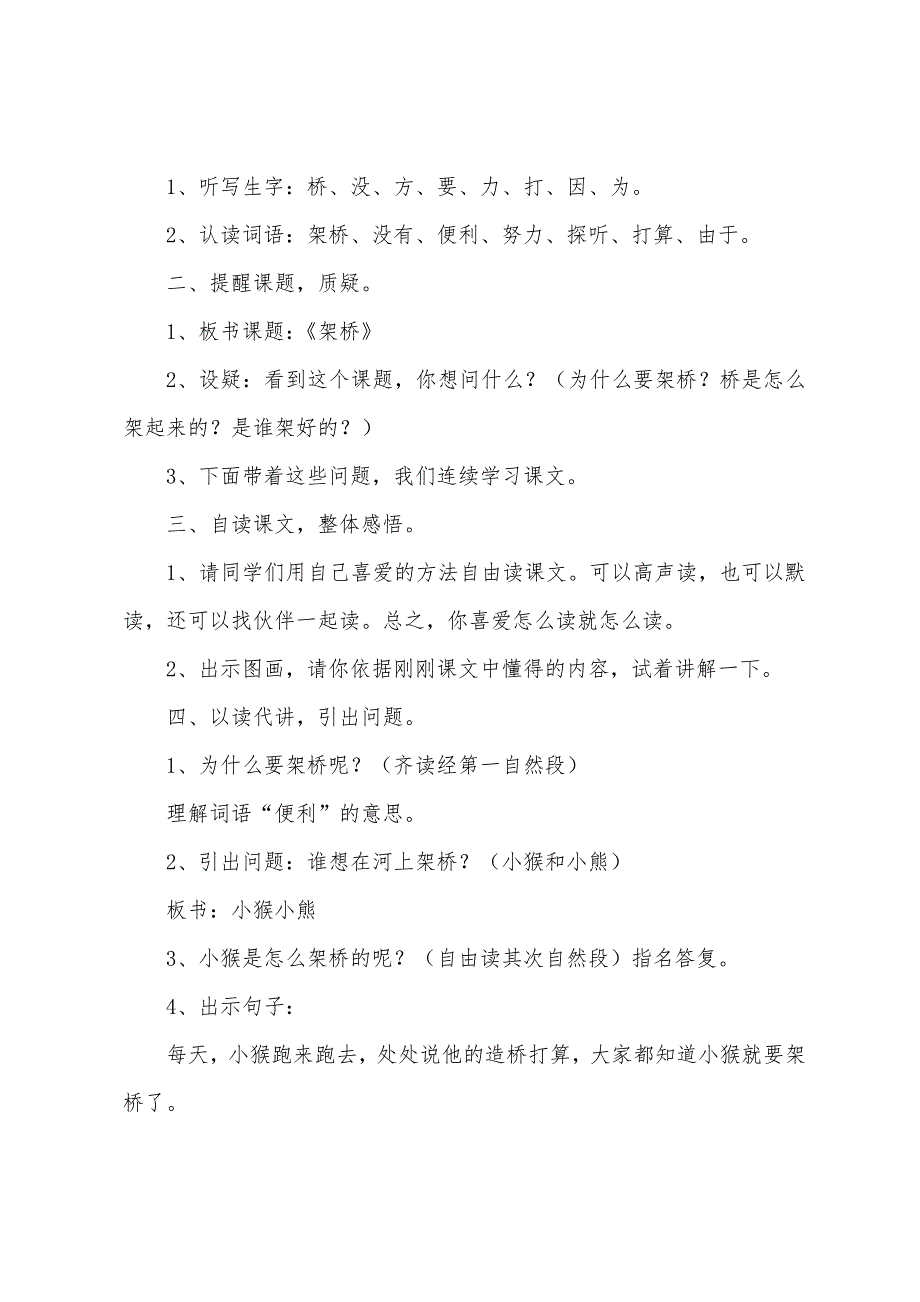 1、听写生字：桥、没、方、要、力、打、因、为。
2、认读词语：架桥、没有、便利、努力、探听、打算、由于。
二、提醒课题，质疑。
1、板书课题：《架桥》
2、设疑：看到这个课题，你想问什么？（为什么要架桥？桥是怎么
架起来的？是谁架好的？）
3、下面带着这些问题，我们连续学习课文。
三、自读课文，整体感悟。
1、请同学们用自己喜爱的方法自由读课文。可以高声读，也可以默
读，还可以找伙伴一起读。总之，你喜爱怎么读就怎么读。
2、出示图画，请你依据刚刚课文中懂得的内容，试着讲解一下。
四、以读代讲，引出问题。
1、为什么要架桥呢？（齐读经第一自然段）
理解词语“便利”的意思。
2、引出问题：谁想在河上架桥？（小猴和小熊）
板书：小猴小熊
3、小猴是怎么架桥的呢？（自由读其次自然段）指名答复。
4、出示句子：
每天，小猴跑来跑去，处处说他的造桥打算，大家都知道小猴就要架
桥了。